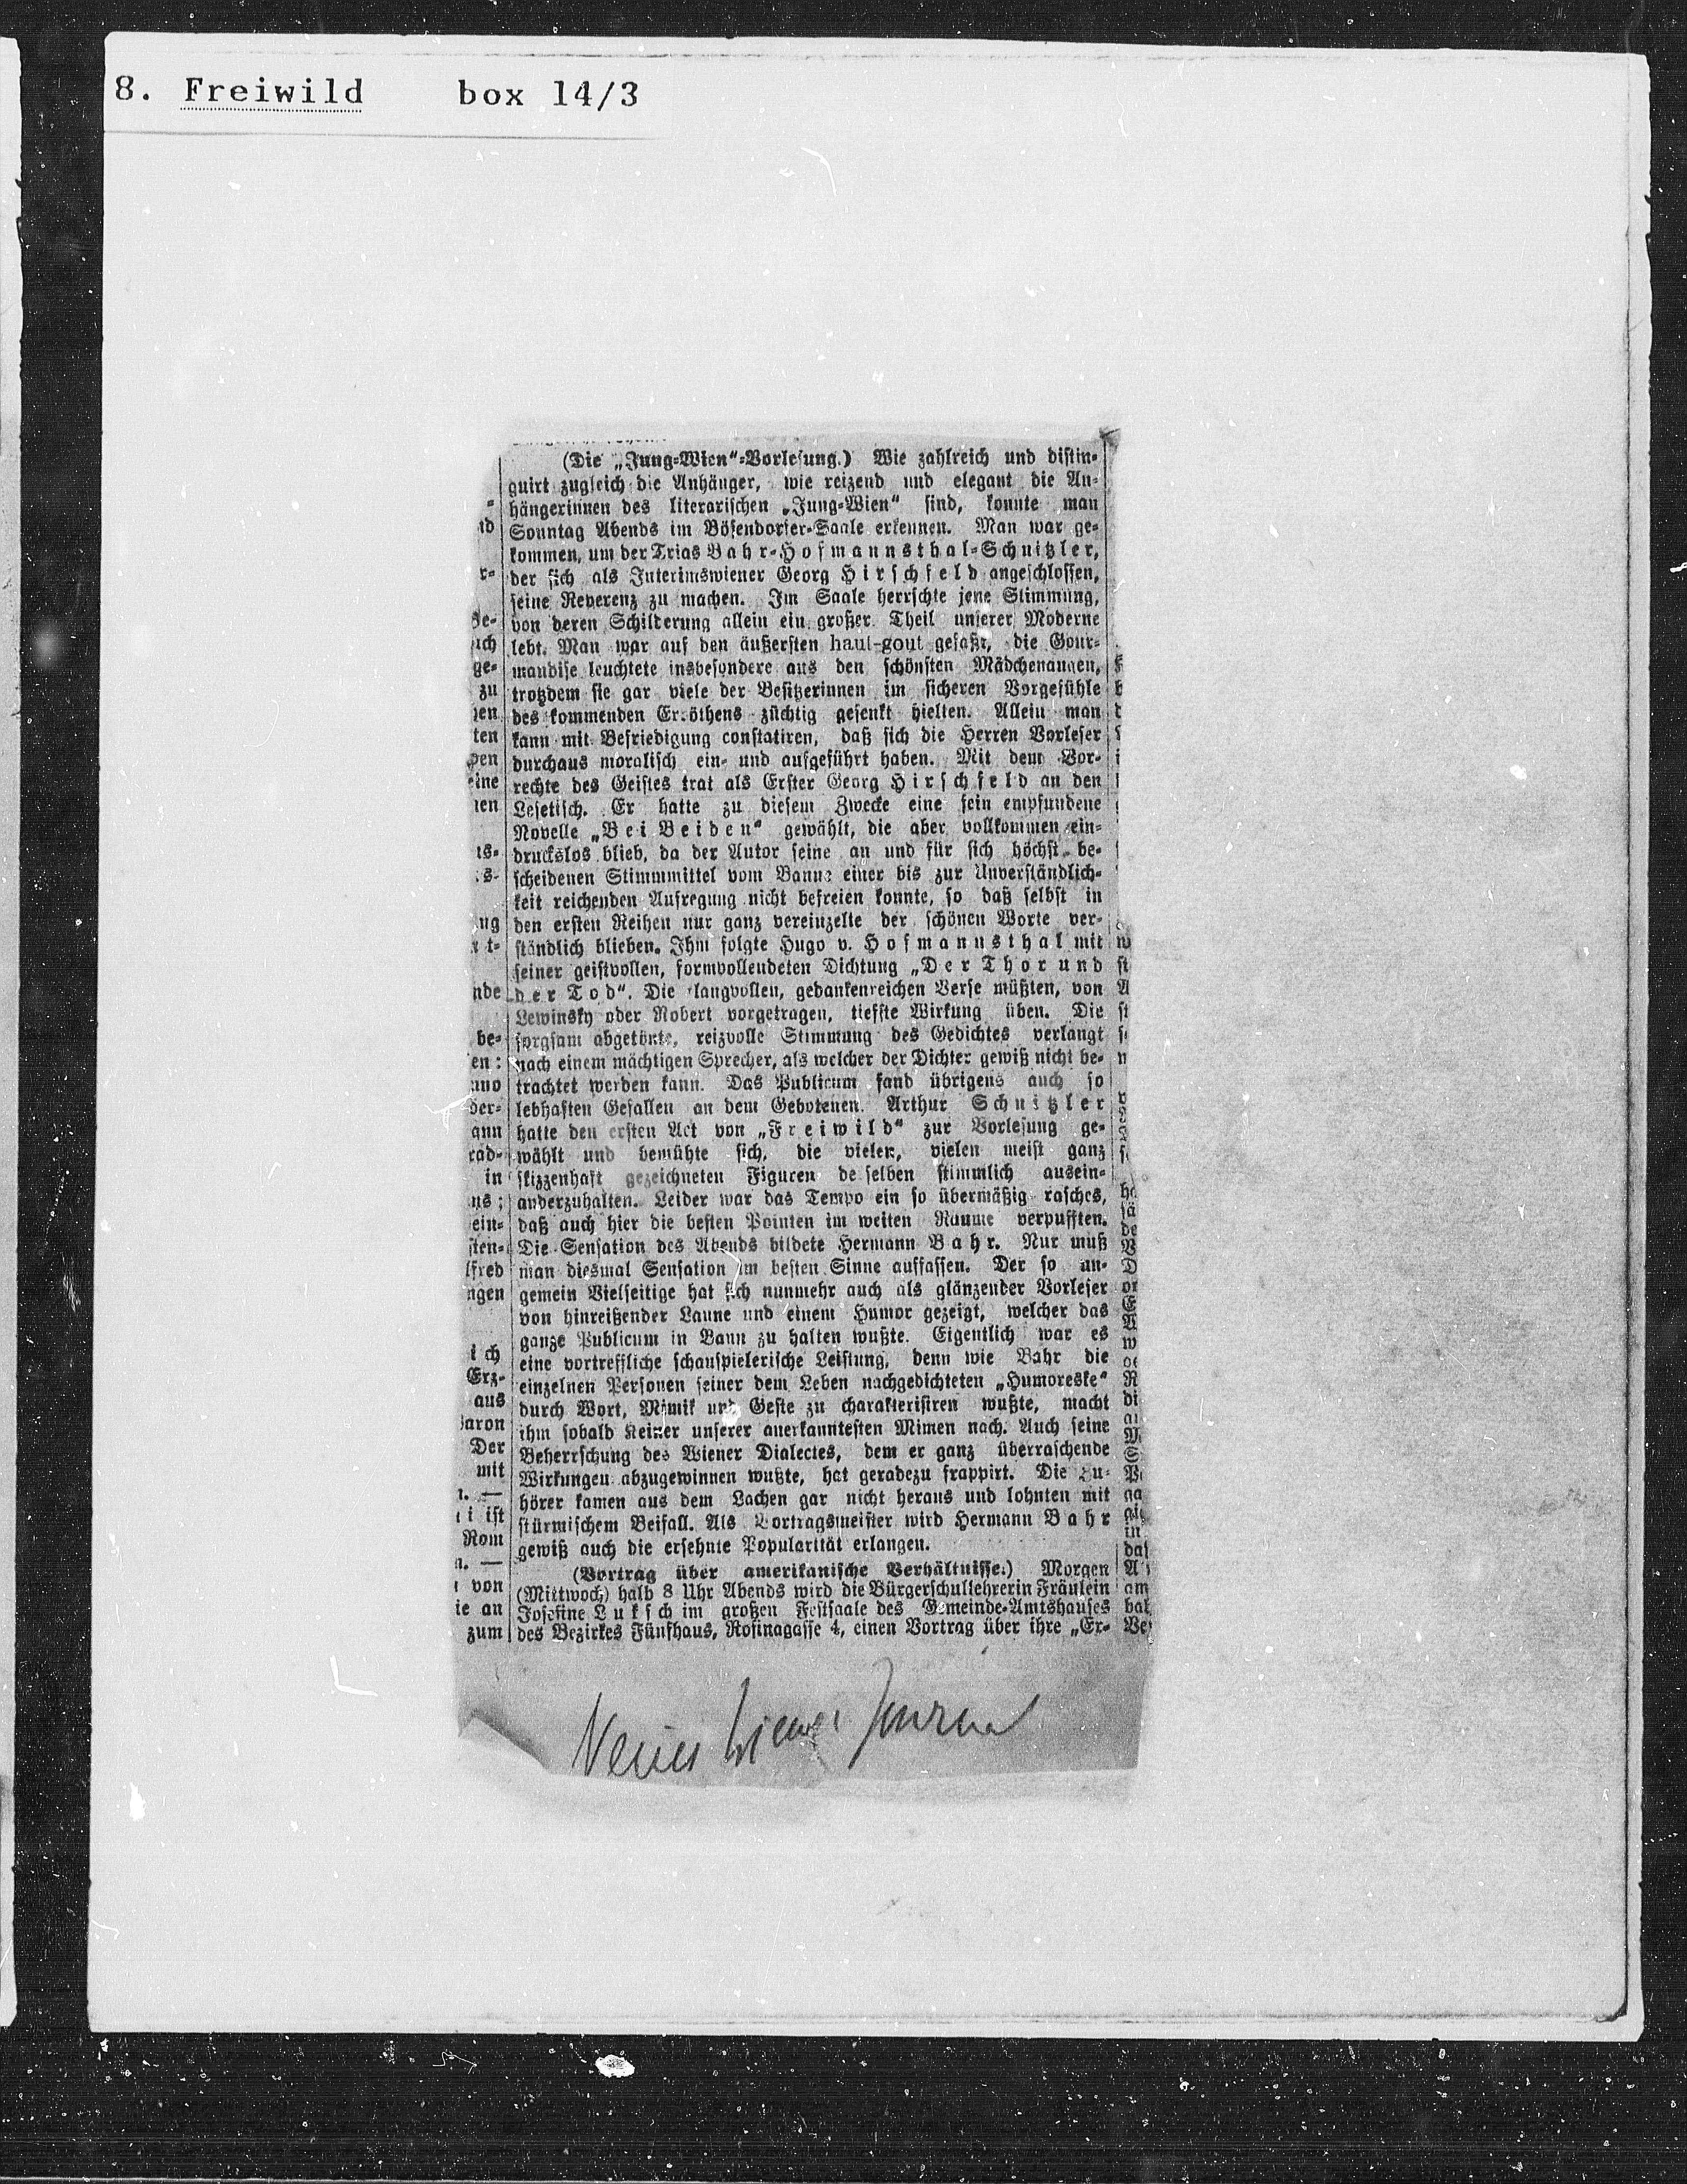 8. Freiwild box 14/3
(Die „Jung-Wien“-Vorlesung.) Wie zahlreich und distin-
guirt zugleich die Anhänger, wie reizend und elegant die An-
hängerinnen des literarischen „Jung-Wien“ sind, konnte man
Sonntag Abends im Bösendorfer-Saale erkennen. Man war ge-
kommen, um der Trias Bahr-Hofmannsthal-Schnitzler,
der sich als Interimswiener Georg Hirschfeld angeschlossen,
seine Reverenz zu machen. Im Saale herrschte jene Stimmung,
von deren Schilderung allein ein großer Theil unserer Moderne
lebt. Man war auf den äußersten haut-gout gefaßt, die Gour-
mandise leuchtete insbesondere aus den schönsten Mädchenaugen,
trotzdem sie gar viele der Besitzerinnen im sicheren Vorgefühle
des kommenden Erröthens züchtig gesenkt hielten. Allein man
kann mit Befriedigung constatiren, daß sich die Herren Vorleser
durchaus moralisch ein- und aufgeführt haben. Mit dem Vor-
rechte des Geistes trat als Erster Georg Hirschfeld an den
Lesetisch. Er hatte zu diesem Zwecke eine fein empfundene
Novelle „Bei Beiden“ gewählt, die aber vollkommen ein-
druckslos blieb, da der Autor seine an und für sich höchst be-
scheidenen Stimmmittel vom Banne einer bis zur Unverständlich-
keit reichenden Aufregung nicht befreien konnte, so daß selbst in
den ersten Reihen nur ganz vereinzelte der schönen Worte ver-
ständlich blieben. Ihm folgte Hugo v. Hofmannsthal mit
seiner geistvollen, formvollendeten Dichtung „Der Thor und
der Tod“. Die klangvollen, gedankenreichen Verse müßten, von
Lewinsky oder Robert vorgetragen, tiefste Wirkung üben. Die
sorgsam abgetönte, reizvolle Stimmung des Gedichtes verlangt
nach einem mächtigen Sprecher, als welcher der Dichter gewiß nicht be-
trachtet werden kann. Das Publicum fand übrigens auch so
lebhaften Gefallen an dem Gebotenen. Arthur Schnitzler
hatte den ersten Act von „Freiwild“ zur Vorlesung ge-
wählt und bemühte sich, die vielen, vielen meist ganz
skizzenhaft gezeichneten Figuren desselben stimmlich ausein-
anderzuhalten. Leider war das Tempo ein so übermäßig rasches,
daß auch hier die besten Pointen im weiten Raume verpufften.
Die Sensation des Abends bildete Hermann Bahr. Nur muß
man diesmal Sensation im besten Sinne auffassen. Der so un-
gemein Vielseitige hat sich nunmehr auch als glänzender Vorleser
von hinreißender Laune und einem Humor gezeigt, welcher das
ganze Publicum in Bann zu halten wußte. Eigentlich war es
eine vortreffliche schauspielerische Leistung, denn wie Bahr die
einzelnen Personen seiner dem Leben nachgedichteten „Humoreske“
durch Wort, Mimik und Geste zu charakterisiren wußte, macht
ihm sobald Keiner unserer anerkanntesten Mimen nach. Auch seine
Beherrschung des Wiener Dialectes, dem er ganz überraschende
Wirkungen abzugewinnen wußte, hat geradezu frappirt. Die Zu-
hörer kamen aus dem Lachen gar nicht heraus und lohnten mit
stürmischem Beifall. Als Vortragsmeister wird Hermann Bahr
gewiß auch die ersehnte Popularität erlangen.
(Vortrag über amerikanische Verhältnisse.) Morgen
(Mittwoch) halb 8 Uhr Abends wird die Bürgerschullehrerin Fräulein
Josefine Luksch im großen Festsaale des Gemeinde-Amtshauses
des Bezirkes Fünfhaus, Rosinagasse 4, einen Vortrag über ihre „Er-
Neues Wiener Journal